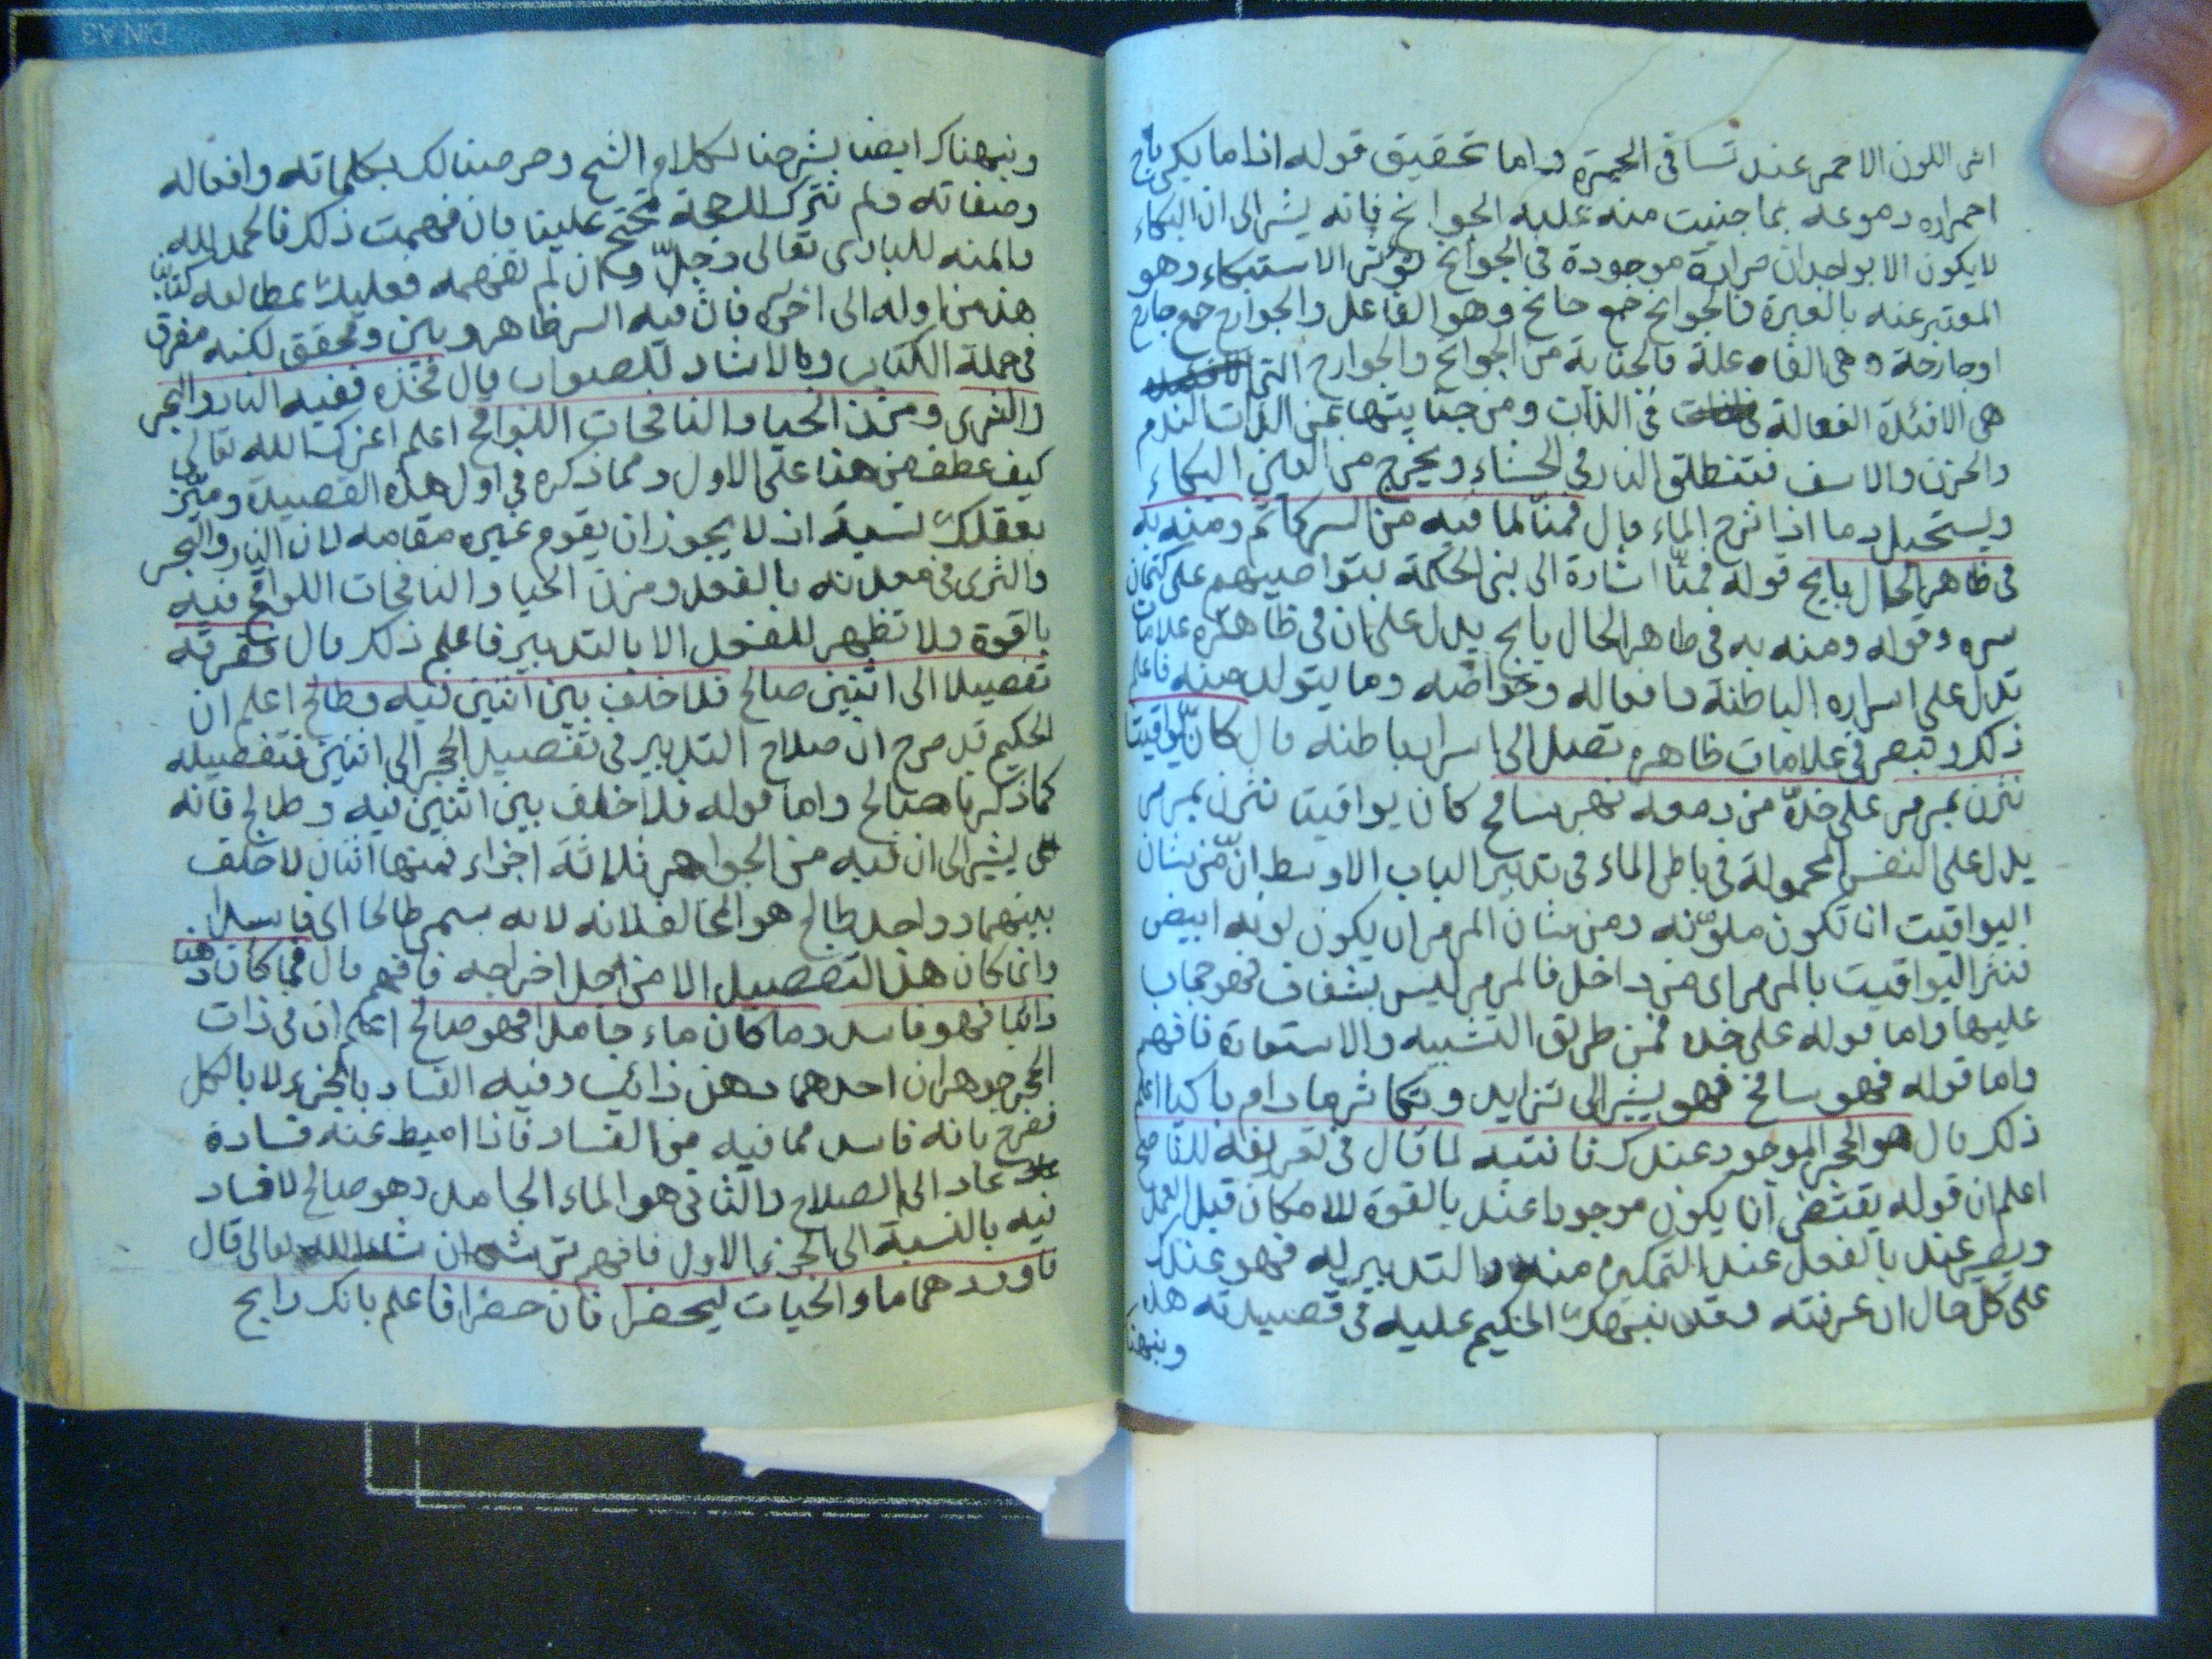 اثر اللون الاحمر عند تساقي الحمرة واما تحقيق قوله اذا ما بكى باح
احمراره دموعه بما جنيت منه عليه الجوانح فانه يشير الى ان البكاء
لا يكون الا بوجدان حرارة موجودة في الجوانح تؤثر الاستبكاء وهو
المعتبر عنه بالعبرة فالجوانح جمع جانح وهو الفاعل والجوارح جمع جارح
او جارحة وهي الفاعلة فالجناية من الجوانح والجوارح التي
هي الافئدة الفعالة في الذات ومن جنايتها عن الذات الندم
والحزن والاسف فتنطلق النار في الحشاء ويخرج من العين البكاء
ويستحيل دما اذا نزح الماء قال فمنا لما فيه من السر كاتم ومنه به
في ظاهر الحال بايح قوله فمنا اشارة الى بني الحكمة بتواصيهم على كتمان
سره وقوله ومنه به في ظاهر الحال بايح يدل على ان في ظاهره علامات
تدل على اسراره الباطنة وافعاله وخواصه وما يتولد منه فاعلم
ذلك وتبصر في علامات ظاهره تصل الى اسرار باطنه قال كان يواقيتا
نثرن بمرمر على خده من دمعه فهو سافح كان يواقيتا نثرن بمرمر
يدل على النفس المحمولة في باطن الماء في تدبير الباب الاوسط ان من شان
اليواقيت ان تكون ملونه ومن شان المرمر ان يكون لونه ابيض
نثر اليواقيت بالمرمر اى من داخل فالمرمر ليس بشفاف فهو حجاب
عليها واما قوله على خده فمن طريق التشبيه والاستعارة فافهم
واما قوله فهو سافح فهو يشير الى تزايد وتكاثر ما دام باكيا اعلم
ذلك قال هو الحجر الموجود عندك فانتبه لما قال في تعريفه للناصح
اعلم ان قوله يقتضى ان يكون موجودا عند بالقوة للامكان قبل العمل
ويصير عند بالفعل عند التمكين منه والتدبير له فهو عندك
على كل حال ان عرفته وقد نبهك الحكيم عليه في قصيدته هذه
ونبهنا
ونبهناك ايضا بشرحنا لكلام الشيخ وحرصنا لك بكلماته وافعاله
وصفاته ولم نترك للحجة تحتج علينا فان فهمت ذلك فالحمد لله
والمنه للبارى تعالى وجل وان لم تفهمه فعليك بمطالعه كتابنا
هذا من اوله الى اخره فان فيه السر ظاهر وبين ومحقق لكنه مفرق
في جملة الكتاب وبالارشاد للصواب قال فخذه ففيه النار والبحر
والثرى ومزن الحيا والنافحات اللواقح اعلم اعزك الله تعالى
كيف عطف من هذا على الاول ومما ذكره في اول هذه القصيدة وميز
بعقلك لشيء اذ لا يجوز ان يقوم غيره مقامه لان النار والبحر
والثرى في معدنه بالفعل ومزن الحيا والنافحات اللواقح فيه
بالقوة ولا تظهر للفعل الا بالتدبير فاعلم ذلك قال تفرقه
تفصيلا الى اثنين صالح فلا خلف بين اثنين فيه وطالح اعلم ان
الحكيم قد صرح ان صلاح التدبير في تفصيل الحجر الى اثنين فتفصيله
كما ذكرنا صالح واما قوله فلا خلف بين اثنين فيه وطالح فانه
يشير الى ان فيه من الجواهر ثلاثة اجزاء فمنها اثنان لا خلف
بينهما وواحد طالح هو المخالف لانه سمى طالحا اى فاسدا
وانما كان هذا التفصيل الا من اجل اخراجه فافهم قال فما كان دهنا
ذائبا فهو فاسد وما كان ماء جامدا فهو صالح اعلم ان في ذات
الحجر جوهران احدهما دهن ذائب وفيه الفساد بالجزء لا بالكل
فصرح بانه فاسد مما فيه من الفساد فاذا اميط عنه فساده
عاد الى الصلاح والثاني هو الماء الجامد وهو صالح لا فساد
فيه بالنسبة الى الجزء الاول فافهم ترشد ان شاء الله تعالى قال
فاورد هما ماء الحيات ليحضرا فان حضرا فاعلم بانك رابح